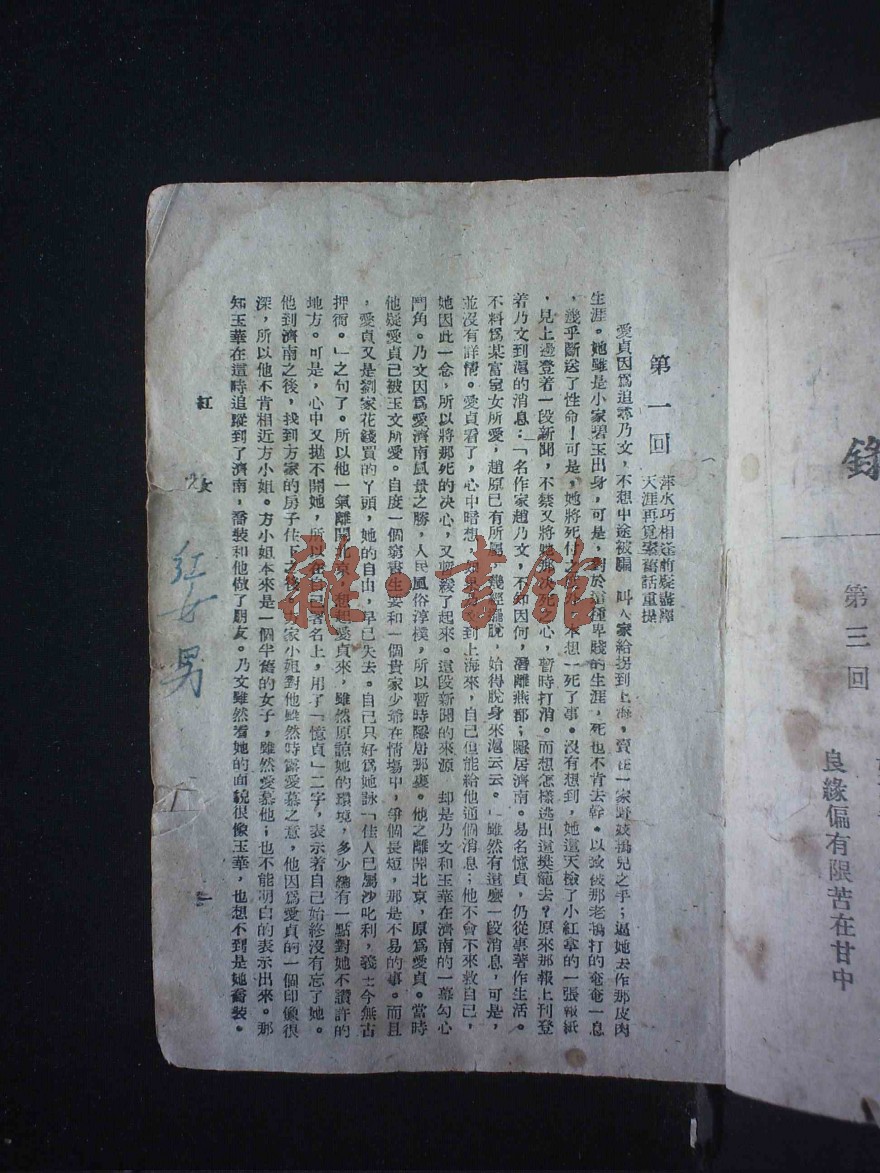 錄
第三回
良緣偏有限苦在甘中
第一回
萍水巧相逢漸疑盡釋
天涯再覓聚舊話重提
愛貞因爲追尋乃文，不想中途被騙，叫人家給拐到上海，賣在一家野妓鴇兒之手；逼她去作那皮肉
生涯。她雖是小家碧玉出身，可是，對於這種卑賤的生涯，死也不肯去幹。以致被那老鴇打的奄奄一息
，幾乎斷送了性命！可是，她將死付之度外，本想一死了事。沒有想到，她這天檢了小紅拿的一張報紙
，見上邊登着一段新聞，不禁又將她那決死之心，暫時打消。而想怎樣逃出這樊籠去？原來那報上刊登
着乃文到滬的消息：「名作家趙乃文，不知因何，潛離燕都；隱居濟南。易名憶貞，仍從事著作生活。
不料爲某富室女所愛，趙原已有所屬，幾經擺脫，始得脫身來滬云云。」雖然有這麼一段消息，可是，
並沒有詳情。愛貞看了，心中暗想，如果乃文到上海來，自己但能給他通個消息；他不會不來救自己，
她因此一念，所以將那死的决心，又鬆緩了起來。這段新聞的來源，却是乃文和玉華在濟南的一幕勾心
鬥角。乃文因爲愛濟南風景之勝，人民風俗淳樸，所以暫時隱居那裏。他之離開北京，原爲愛貞。當時
他疑愛貞已被玉文所愛。自度一個窮書生要和一個貴家少爺在情場中，爭個長短，那是不易的事。而且
，愛貞又是劉家花錢買的丫頭，她的自由，早已失去。自己只好爲她詠「佳人已屬沙叱利，義士今無古
押衙。」之句了。所以他一氣離開北京，想起愛貞來，雖然原諒她的環境，多少總有一點對她不讚許的
地方。可是，心中又拋不開她，所以在自己著名上，用了「憶貞」二字，表示着自己始終沒有忘了她。
他到濟南之後，找到方家的房子住下之後。方家小姐對他雖然時露愛慕之意，他因爲愛貞的一個印像很
深，所以他不肯相近方小姐。方小姐本來是一個半舊的女子，雖然愛慕他；也不能明白的表示出來。那
知玉華在這時追蹤到了濟南，喬裝和他做了朋友。乃文雖然看她的面貌很像玉華，也想不到是她喬裝。
紅 女 一
紅女男
雜·書館